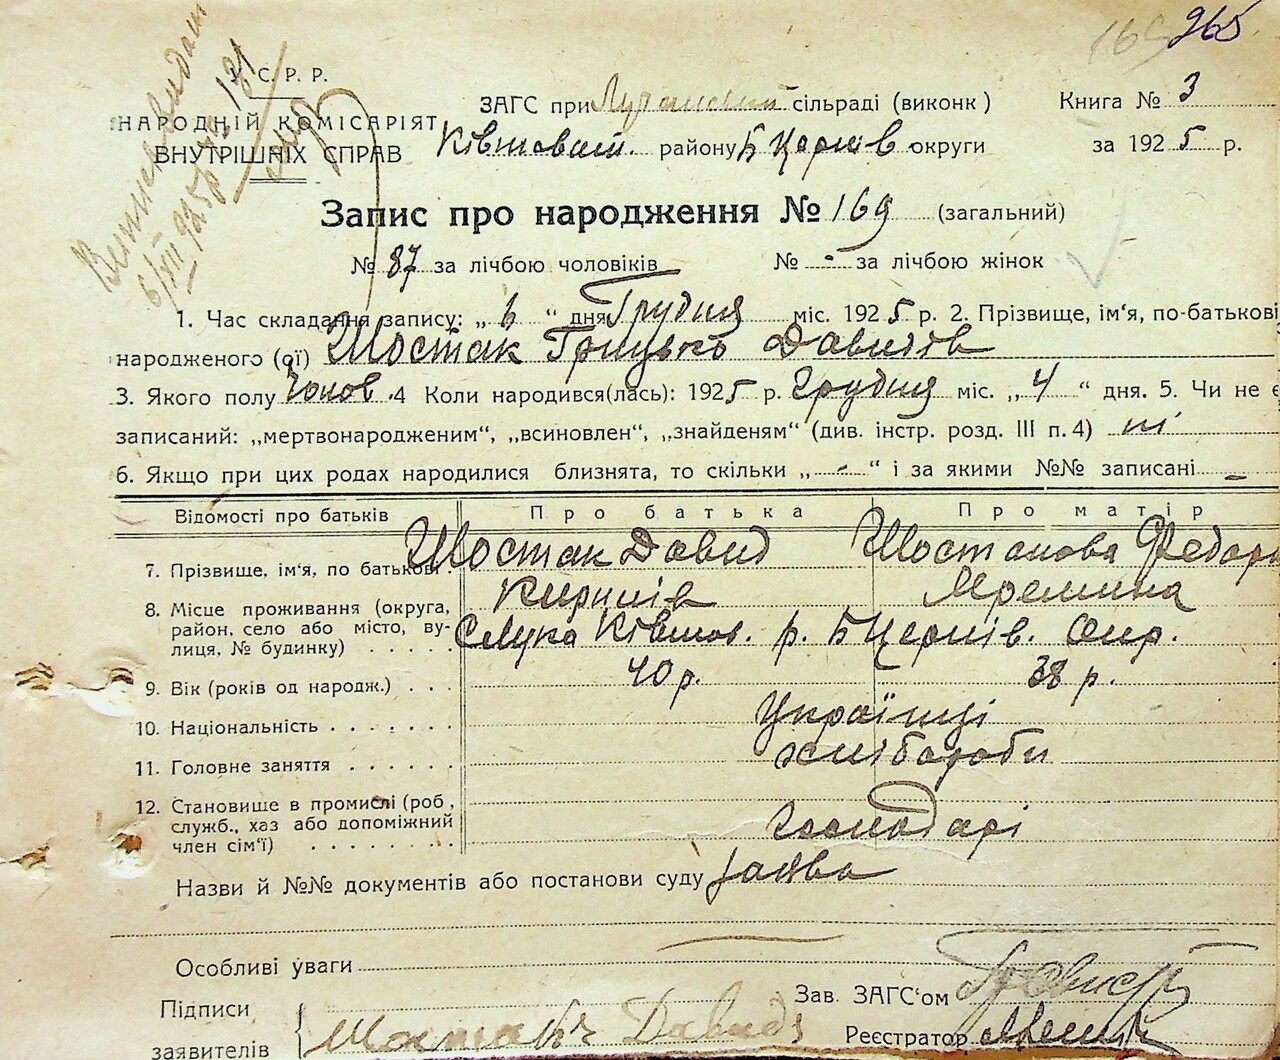 169 265
У. С. Р. Р.
НАРОДНІЙ КОМІСАРІЯТ
ВНУТРІШНІХ СПРАВ
ЗАГС при Лучанській сільраді (виконк)
Ківшоват. району Б Церків округи
Книга № 3
за 1925 р.
6/XII 925р № 131
Запис про народження № 169 (загальний)
№ 87 за лічбою чоловіків № - за лічбою жінок
1. Час складання запису: „ 6 “ дня Грудня міс. 1925 р. 2. Прізвище, ім‘я, по-батькові
народженого (ої) Шостак Грицько Давидів
3. Якого полу чолов. 4 Коли народився(лась): 1925 р. Грудня міс. „ 4 “ дня. 5. Чи не є
записаний: „мертвонародженим“, „всиновлен“, „знайденям“ (див. інстр. розд. III п. 4) ні
6. Якщо при цих родах народилися близнята, то скільки „ - “ і за якими №№ записані -
Відомості про батьків Про батька Про матір
7. Прізвище, ім‘я, по батькові. Шостак Давид Шостакова Федора
Кирилів Яремина
8. Місце проживання (округа,
район, село або місто, ву-
лиця, № будинку) . . . . . с Лука Ківшов. р. Б Церків. Окр.
9. Вік (років од народж.) . . . 40 р. 38 р.
10. Національність . . . . . . Українці
11. Головне заняття . . . . . . хлібороби
12. Становище в промислі (роб,
служб., хаз або допоміжний
член сім‘ї) . . . . . . . Господарі
Назви й №№ документів або постанови суду заява
Особливі уваги
Підписи
заявителів Шостак Давид
Зав. ЗАГС‘ом
Реєстратор